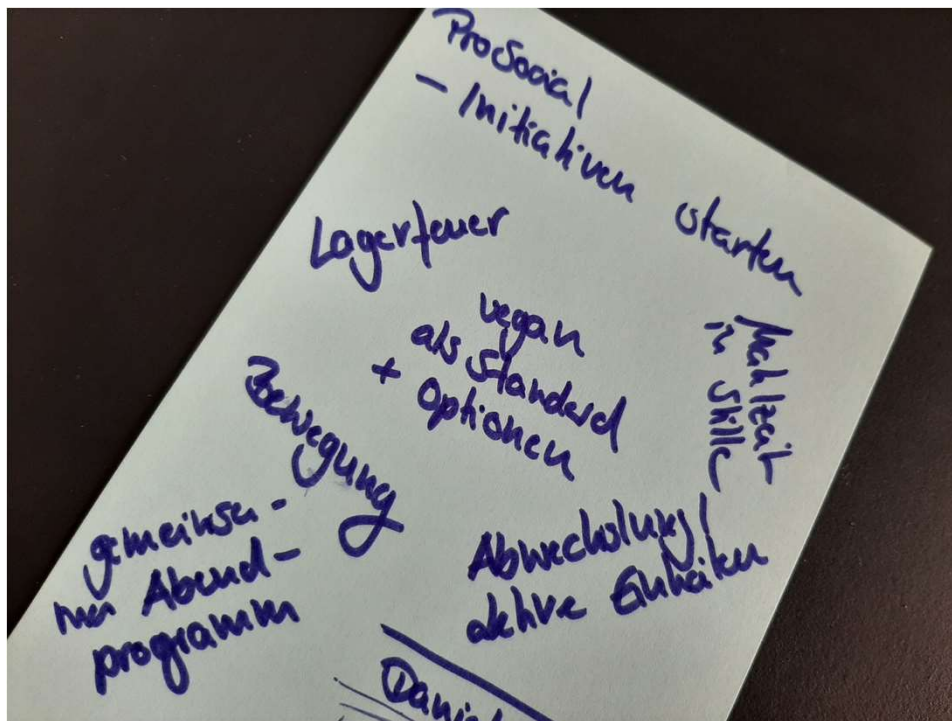 ProSocial
- Initiativen starten
Lagerfeuer
vegan
als Standard
+ Optionen
Mahlzeit
in Stille
Bewegung
gemeinsa-
mes Abend-
programm
Abwechslung/
aktive Einheiten